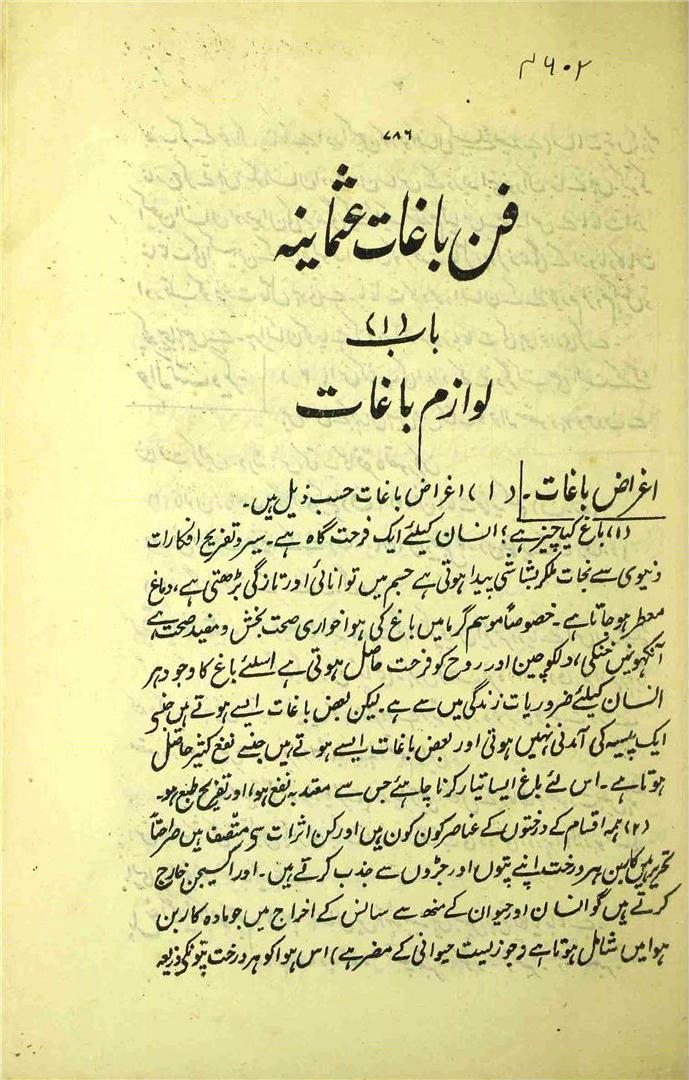 ۶۰۲ م
۷۸۶
فن باغات عثمانیہ
باب (۱)
لوازم باغات
اغراض باغات۔ (۱) اغراض باغات حسب ذیل ہیں۔
(۱) باغ کیا چیز ہے؟ انسان کیلئے ایک فرحت گاہ ہے۔ سیر و تفریح افکارات
دنیوی سے نجات ملکر بشاشی پیدا ہوتی ہے جسم میں توانائی اور تازگی بڑھتی ہے، دماغ
معطر ہو جاتا ہے۔ خصوصاً موسم گرما میں باغ کی ہوا خواری صحت بخش و مفید صحت ہے
آنکھونمیں خنکی، دلکو چین اور روح کو فرحت حاصل ہوتی ہے اسلئے باغ کا وجود ہر
انسان کیلئے ضروریات زندگی میں سے ہے۔ لیکن بعض باغات ایسے ہوتے ہیں جنسے
ایک پیسہ کی آمدنی نہیں ہوتی اور بعض باغات ایسے ہوتے ہیں جنسے نفع کثیر حاصل
ہوتا ہے۔ اس لئے باغ ایسا تیار کرنا چاہئے جس سے معتد بہ نفع ہو، اور تفریح طبع ہو۔
(۲) ہمہ اقسام کے درختوں کے عناصر کون کون ہیں اور کن اثرات سے متصف ہیں صراحتاً
تحریر ہیں کاربن ہر درخت اپنے پتوں اور جڑوں سے جذب کرتے ہیں۔ اور اکسیجن خارج
کرتے ہیں گو انسان اور حیوان کے منھ سے سانس کے اخراج میں جو مادہ کاربن
ہوا میں شامل ہوتا ہے (جو زیست حیوانی کے مضر ہے) اس ہوا کو ہر درخت پتونکے ذریعہ